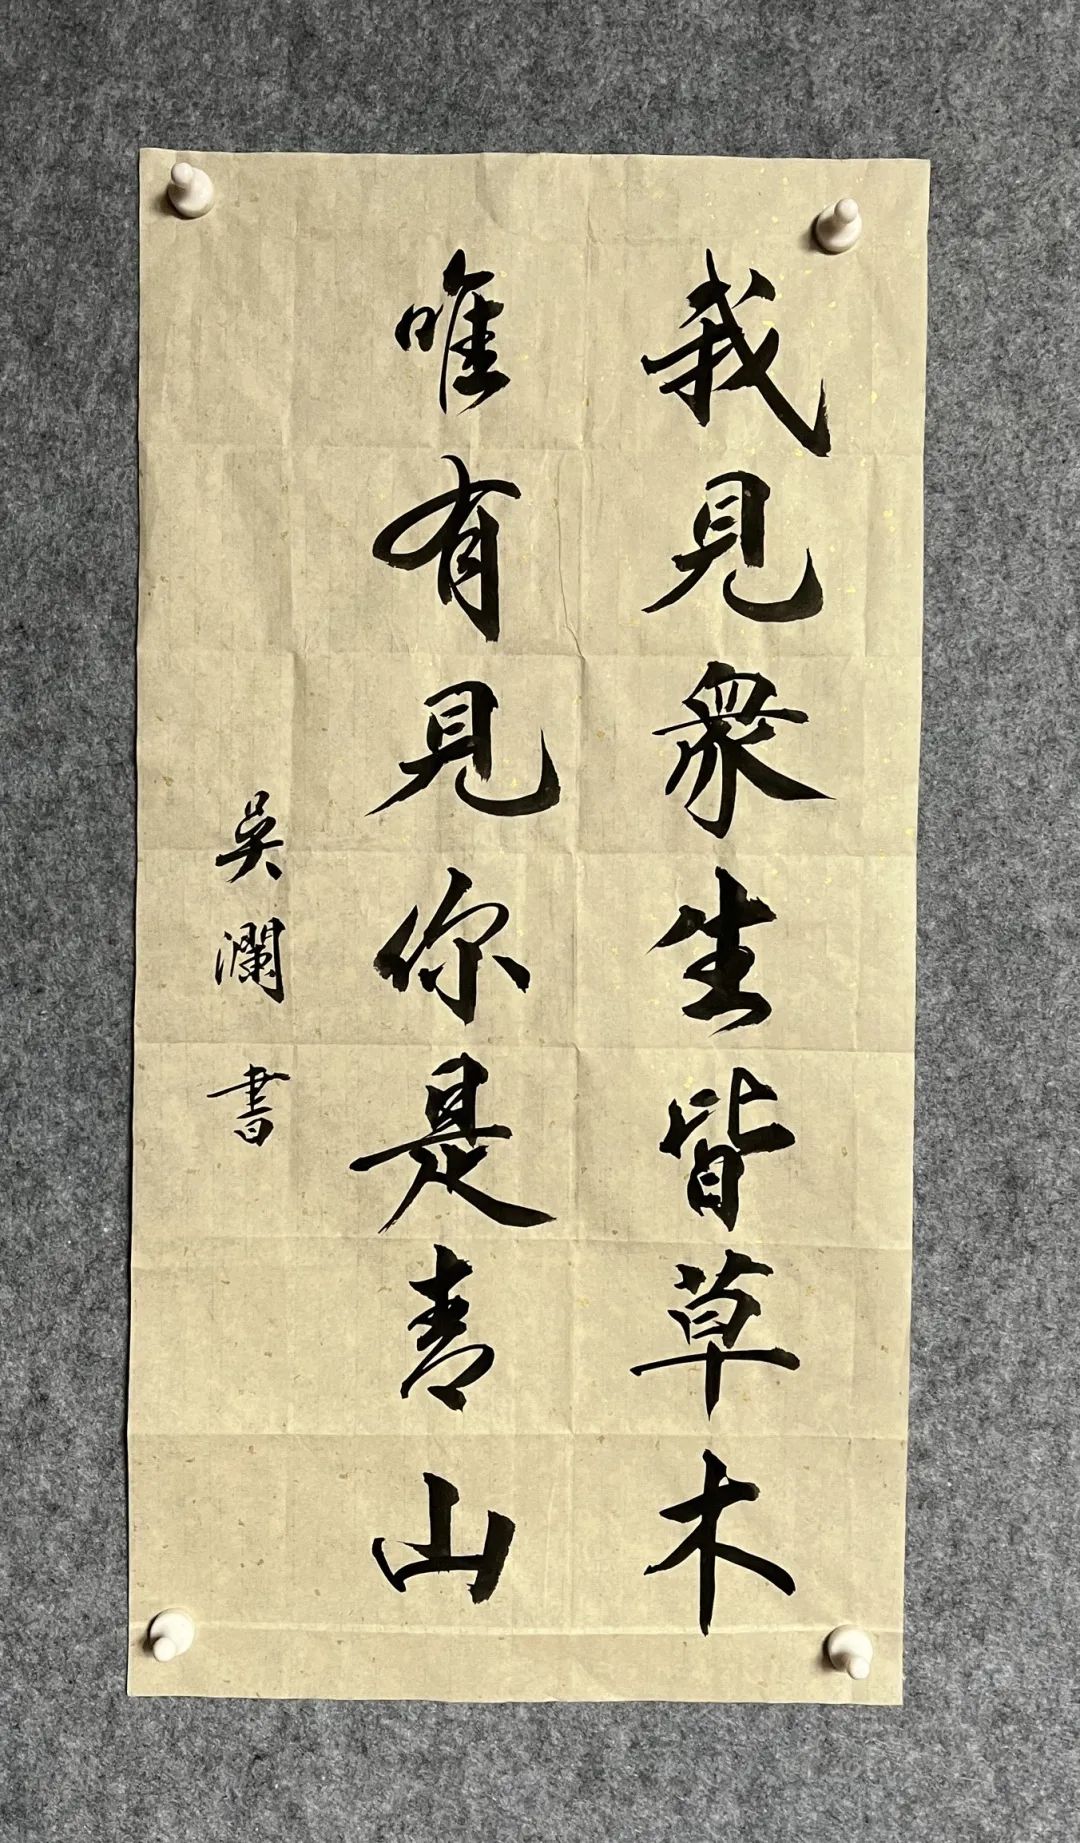 我見眾生皆草木
唯有見你是青山
吳瀾書